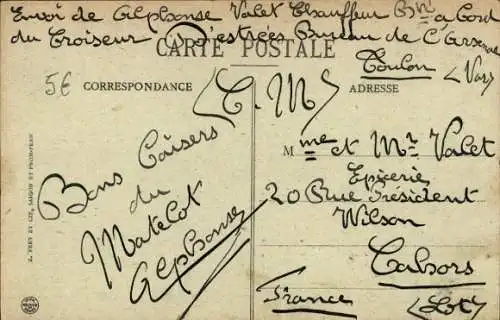 Envoi de Alphonse Valet Chauffeur Bté a bord
du Croiseur D'estrées Bureau de l'Arsenal
Toulon (Var)
CARTE POSTALE
5€
CORRESPONDANCE
(C. M)
ADRESSE
Bons Baisers
du
Matelot
Alphonse
Mme et Mr Valet
Epicerie
20 Rue Président
Wilson
Cahors
(Lot)
France